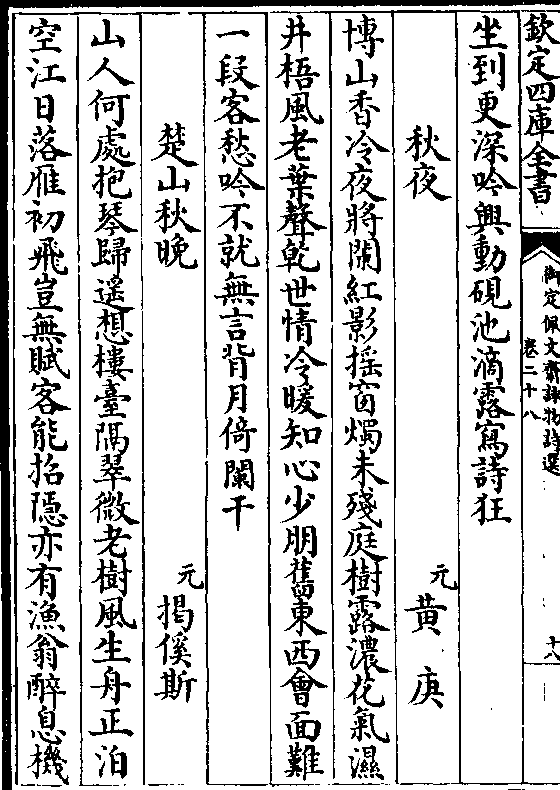 欽定四庫全書
御定佩文齋詠物詩選
卷二十八
十八
坐到更深吟興動硯池滴露寫詩狂
秋夜
元 黃庚
博山香冷夜將闌紅影摇窗燭未殘庭樹露濃花氣濕
井梧風老葉聲乾世情冷暖知心少朋舊東西會面難
一段客愁吟不就無言背月倚闌干
楚山秋晚
元 揭傒斯
山人何處抱琴歸遥想樓臺隔翠微老樹風生舟正泊
空江日落雁初飛豈無賦客能招隱亦有漁翁醉息機